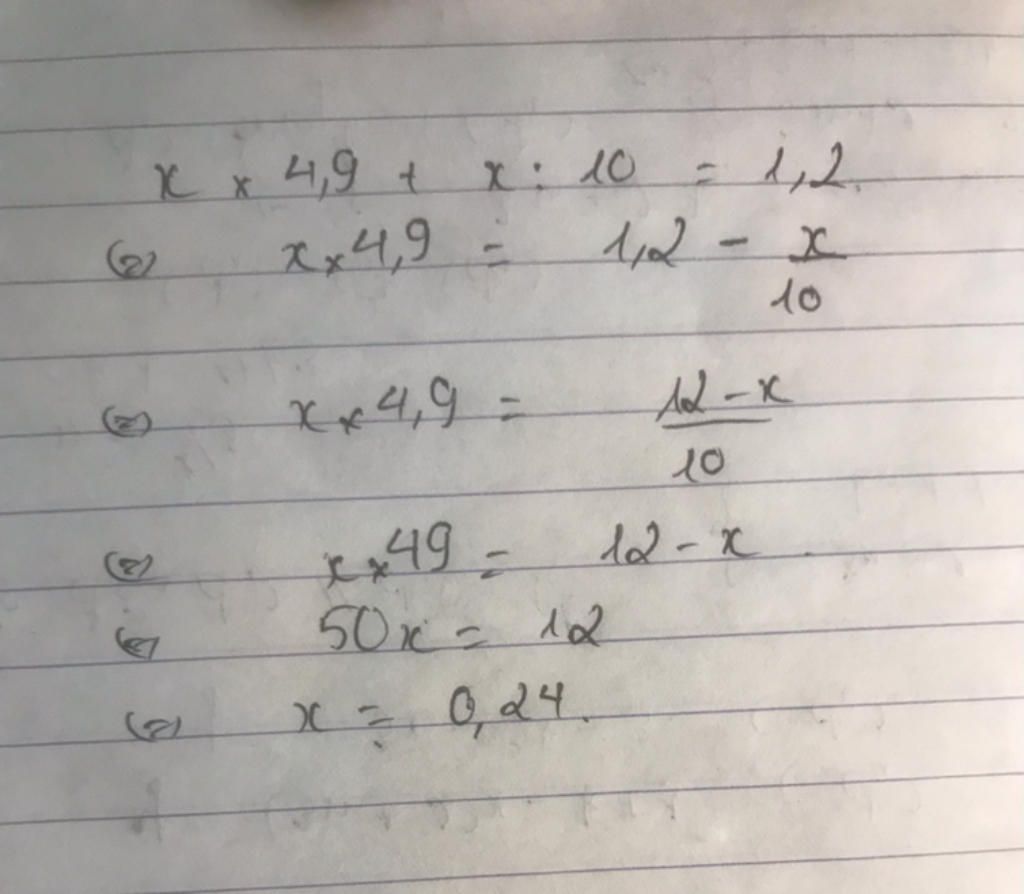 x × 4,9 + x : 10 = 1,2.
(=) x × 4,9 = 1,2 - x/10
(=) x × 4,9 = 12 - x/10
(=) x × 49 = 12 - x
(=) 50x = 12
(=) x = 0,24.